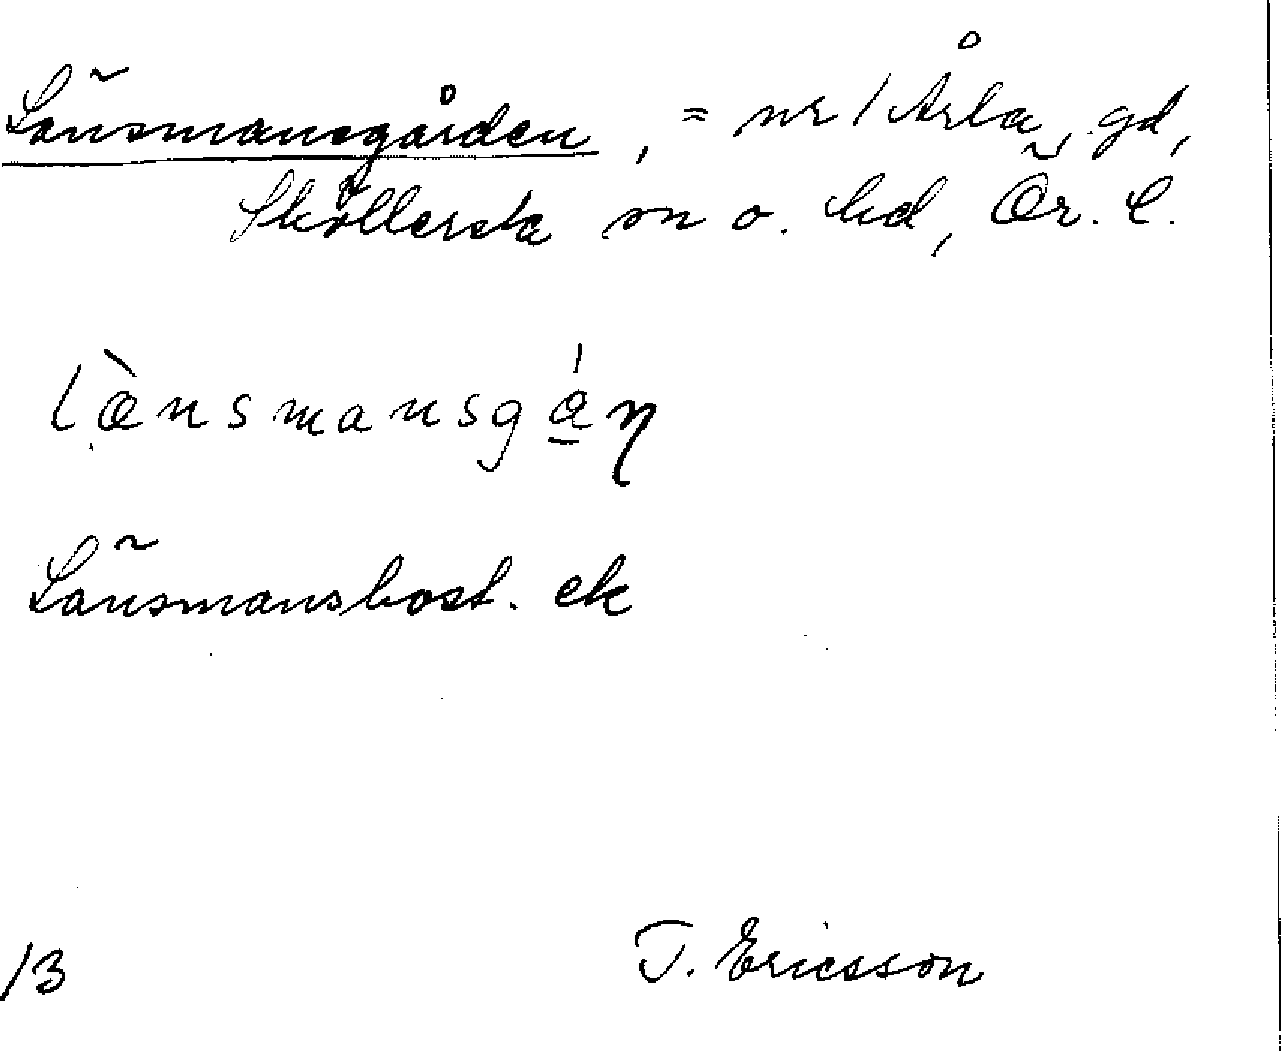 Länsmansgården, = nr 1 Årla, gd,
Sköllersta sn o. hd, Ör. l.
læ̀nsmansgá̱ɳ
Länsmansbost. ek
13 T. Ericsson